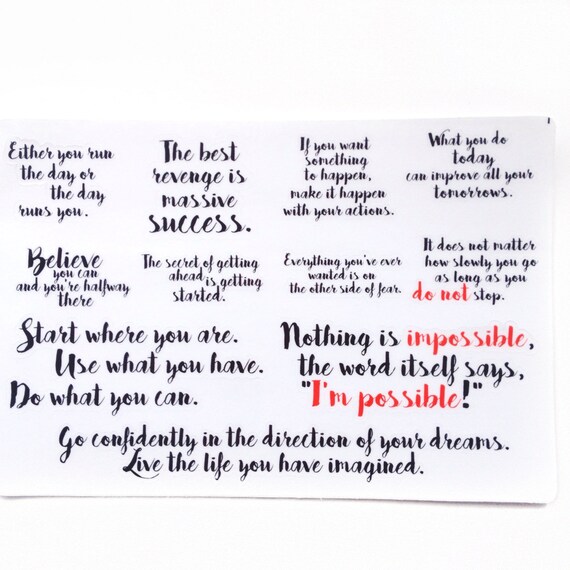 Either you run
the day or
the day
runs you.
The best
revenge is
massive
success.
If you want
something
to happen,
make it happen
with your actions.
What you do
today
can improve all your
tomorrows.
Believe
you can
and you're halfway
there
The secret of getting
ahead is getting
started.
Everything you've ever
wanted is on
the other side of fear.
It does not matter
how slowly you go
as long as you
do not stop.
Start where you are.
Use what you have.
Do what you can.
Nothing is impossible,
the word itself says,
"I'm possible!"
Go confidently in the direction of your dreams.
Live the life you have imagined.